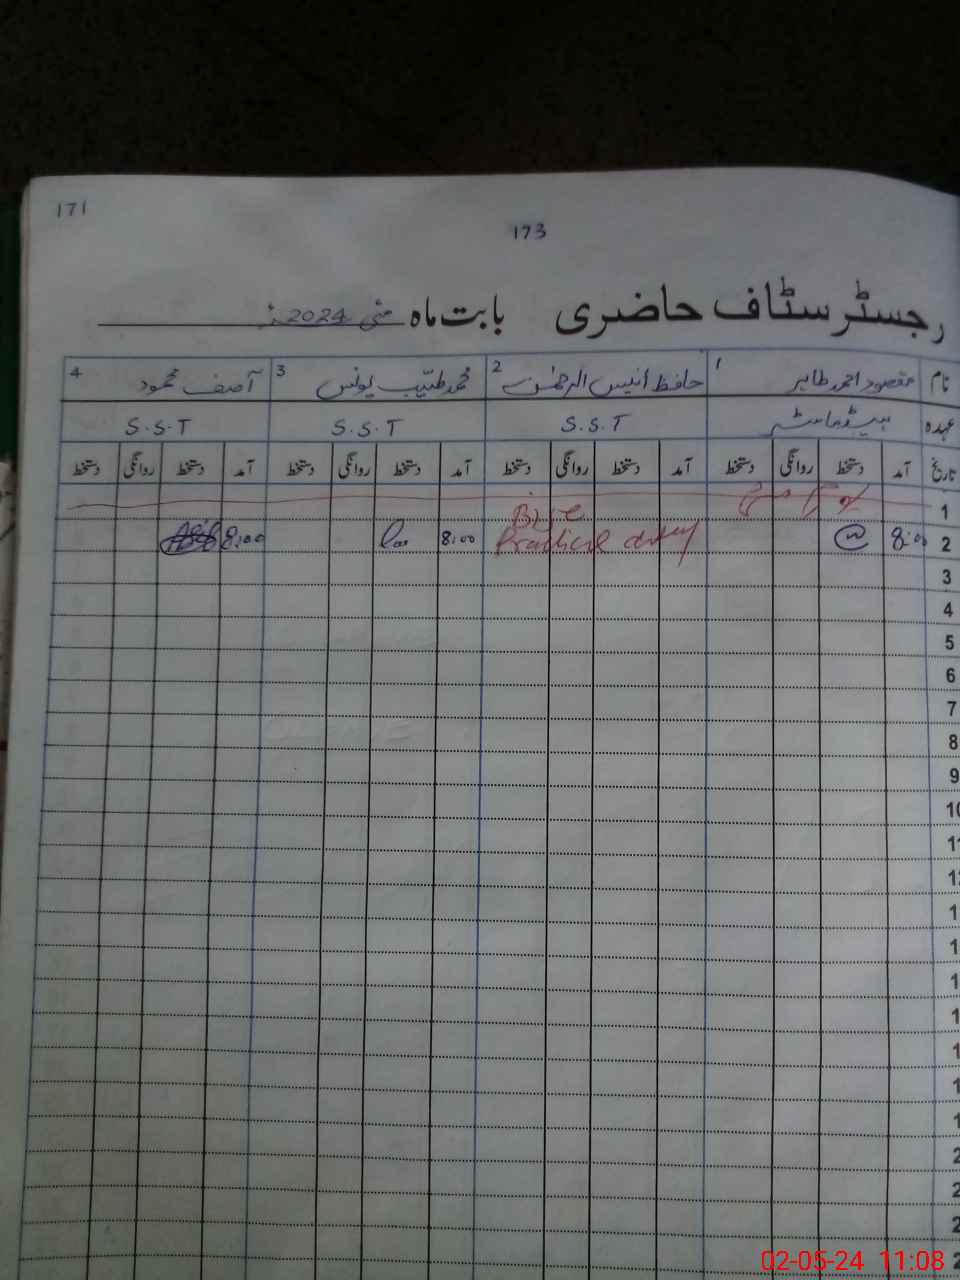 171
173
رجسٹر سٹاف حاضری بابت ماہ مئی 2024ء
نام 1 مقصود احمد طاہر 2 حافظ انیس الرحمٰن 3 محمد طیب یونس 4 آصف محمود
عہدہ ہیڈماسٹر S.S.T S.S.T S.S.T
تاریخ آمد دستخط روانگی دستخط آمد دستخط روانگی دستخط آمد دستخط روانگی دستخط آمد دستخط روانگی دستخط
1
2 8:00 Bise Practical duty 8:00 8:00
3
4
5
6
7
8
9
10
11
12
02-05-24 11:08